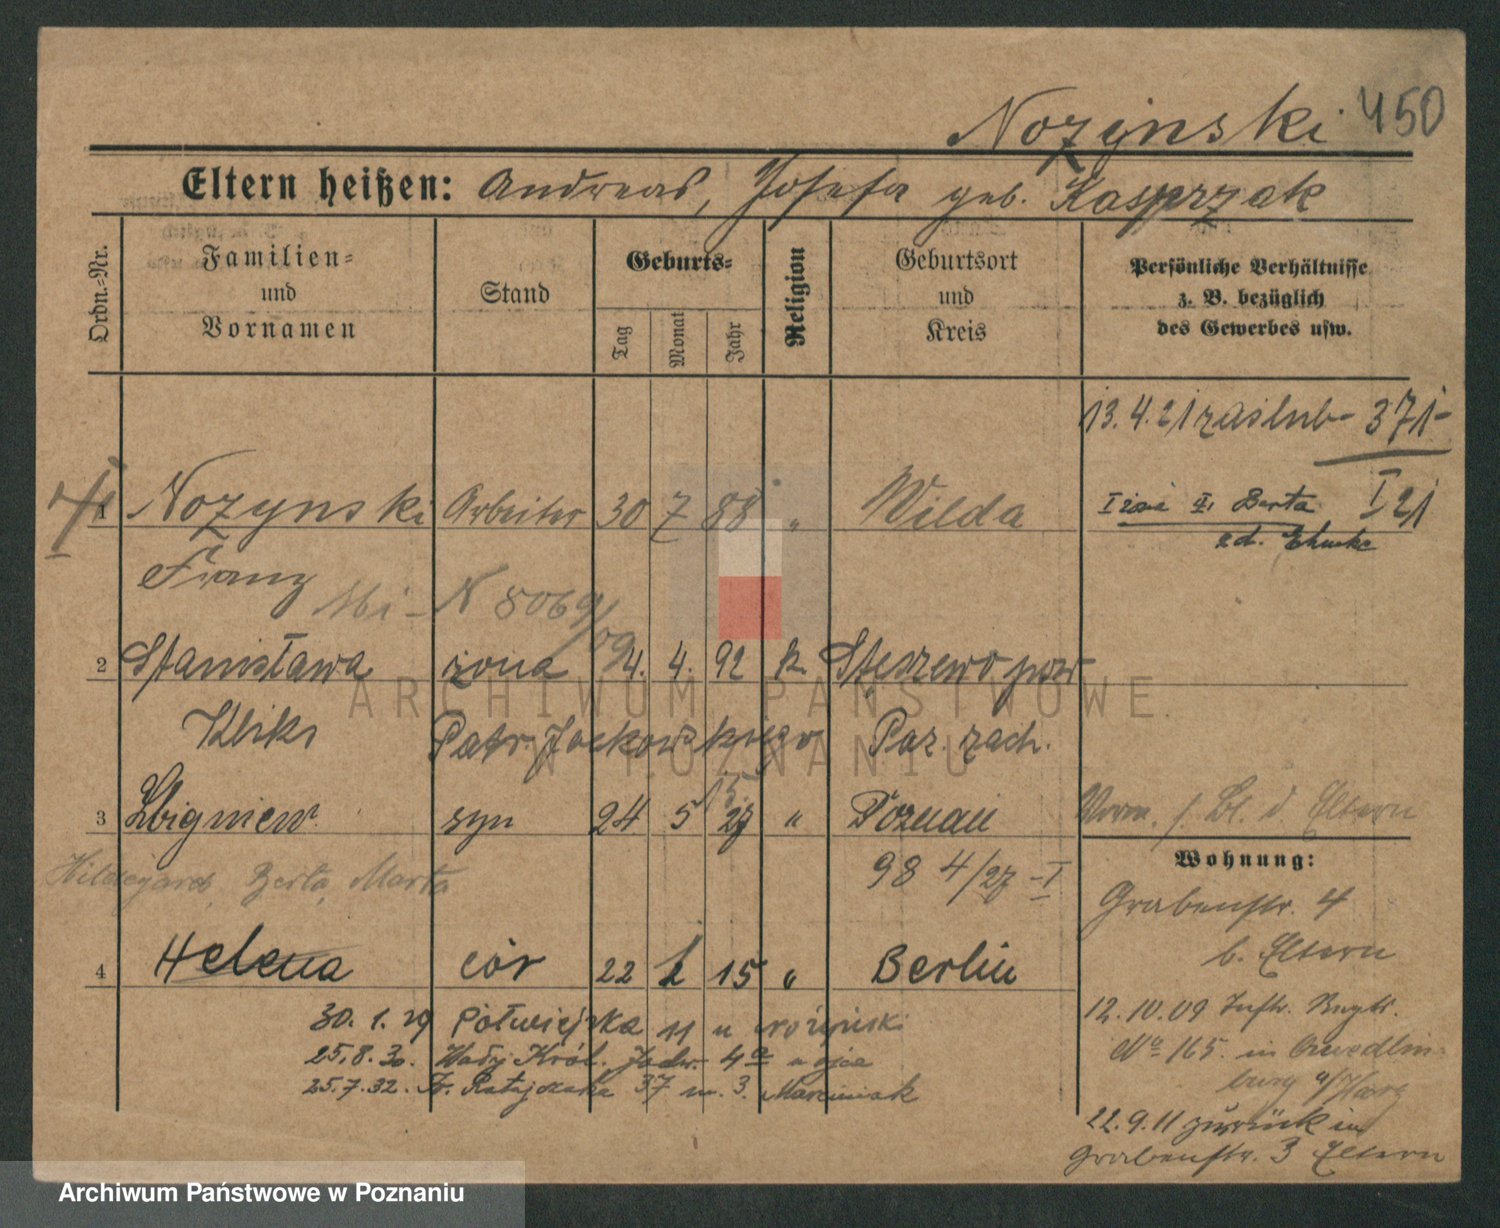 Nozynski 450
Eltern heißen: Andreas, Josefa geb. Kasprzak
Ordn.-Nr.
Familien-
und
Vornamen
Stand
Geburts-
Tag
Monat
Jahr
Religion
Geburtsort
und
Kreis
Persönliche Verhältnisse
z. B. bezüglich
des Gewerbes usw.
13.4.21 zaślub- 371-
I 21
1 Nozynski Arbeiter 30 7 88 " Wilda
II Berta
Franz
N 8069/09
2 Stanisława żona 4. 4. 92 k. Stęszewo
Patr. Jackowskiego Poz. zach.
3 Zbigniew syn 24 5 27 " Poznań
Vorm. s. Bl. d. Eltern
Wohnung:
Hildegard, Berta, Marta
98 4/27 - I
Grabenstr. 4
b. Eltern
4 Helena cór 22 15 " Berlin
12.10.09 Inftr. Regtr.
No 165. in Quedlin-
burg a/Harz
22.9.11 zurück in
Grabenstr. 3 Eltern
30.1.29 Półwiejska 11 u
25.8.30. Król. Jadw. 4a u ojca
25.7.32. Fr. Ratajczaka 37 m. 3. Marciniak
ARCHIWUM PAŃSTWOWE
W POZNANIU
Archiwum Państwowe w Poznaniu